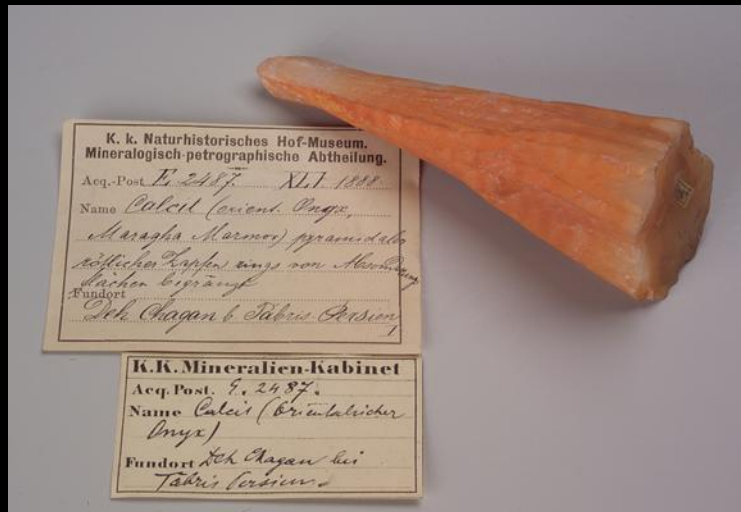 K. k. Naturhistorisches Hof-Museum.
Mineralogisch-petrographische Abtheilung.
Acq.-Post F. 2487. XI.I. 1888
Name Calcit (orient. Onyx,
Maragha Marmor) pyramidaler
rötlicher Zapfen rings von Absonderung
flächen begränzt
Fundort
Deh Chagan b Täbris-Persien
I
K.K. Mineralien-Kabinet
Acq. Post. 2487.
Name Calcit (Orientalischer
Onyx)
Fundort Deh Chagan bei
Täbris Persien.